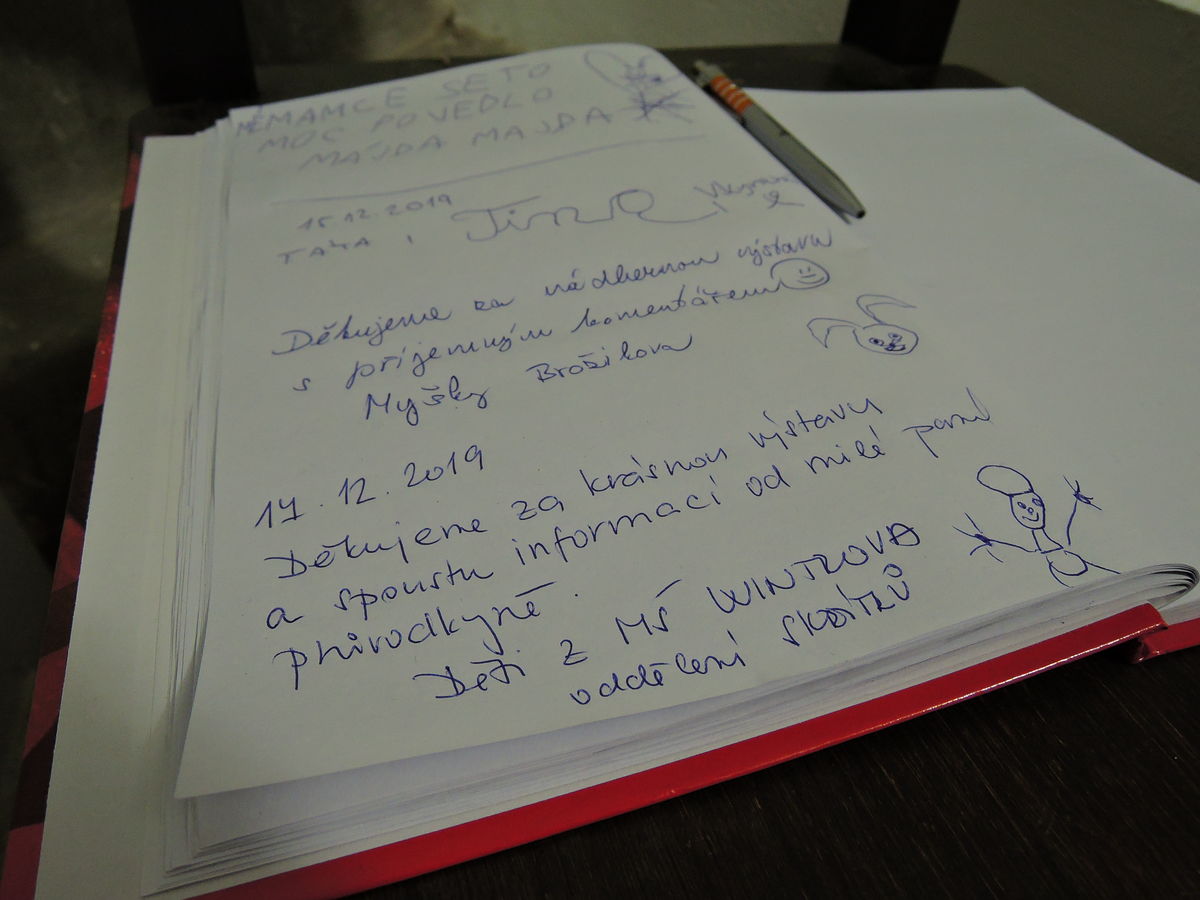 MAMCE SE TO
MOC POVEDLO
MÁJDA MAJDA
15.12.2019
TÁŇA,
Děkujeme za nádhernou výstavu
s příjemným komentářem
Myšky Brožíkova
17.12.2019
Děkujeme za krásnou výstavu
a spoustu informací od milé paní
přírodkyně.
Děti z MŠ WINTROVA
oddělení SKŘÍTKŮ